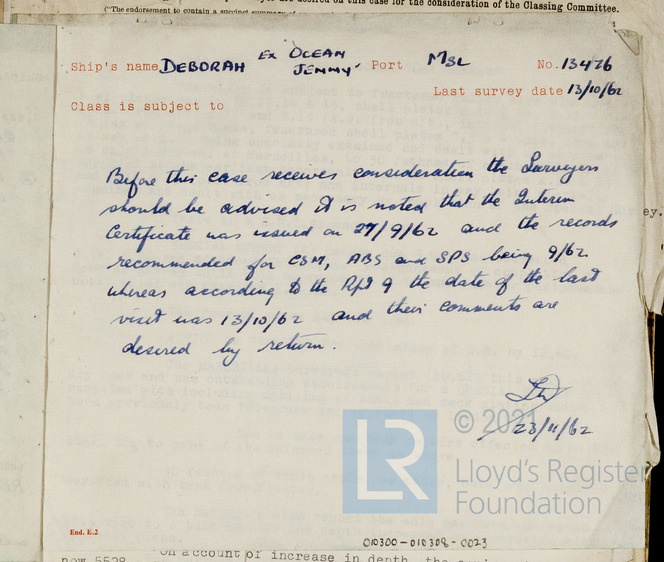 are desired on this case for the consideration of the Classing Committee.
("The endorsement to contain a succinct summary of
Ship's name DEBORAH EX OCEAN JENNY Port MSL No. 13476
Last survey date 13/10/62
Class is subject to
Before this case receives consideration the Surveyors
should be advised it is noted that the Interim
Certificate was issued on 27/9/62 and the records
recommended for CSM, ABS and SPS being 9/62
whereas according to the Rpt 9 the date of the last
visit was 13/10/62 and their comments are
desired by return.
23/11/62
© 2021
LR
Lloyd's Register
Foundation
End. E.2
010300-010308-0023
now 5528
on account of increase in depth, the
ey.